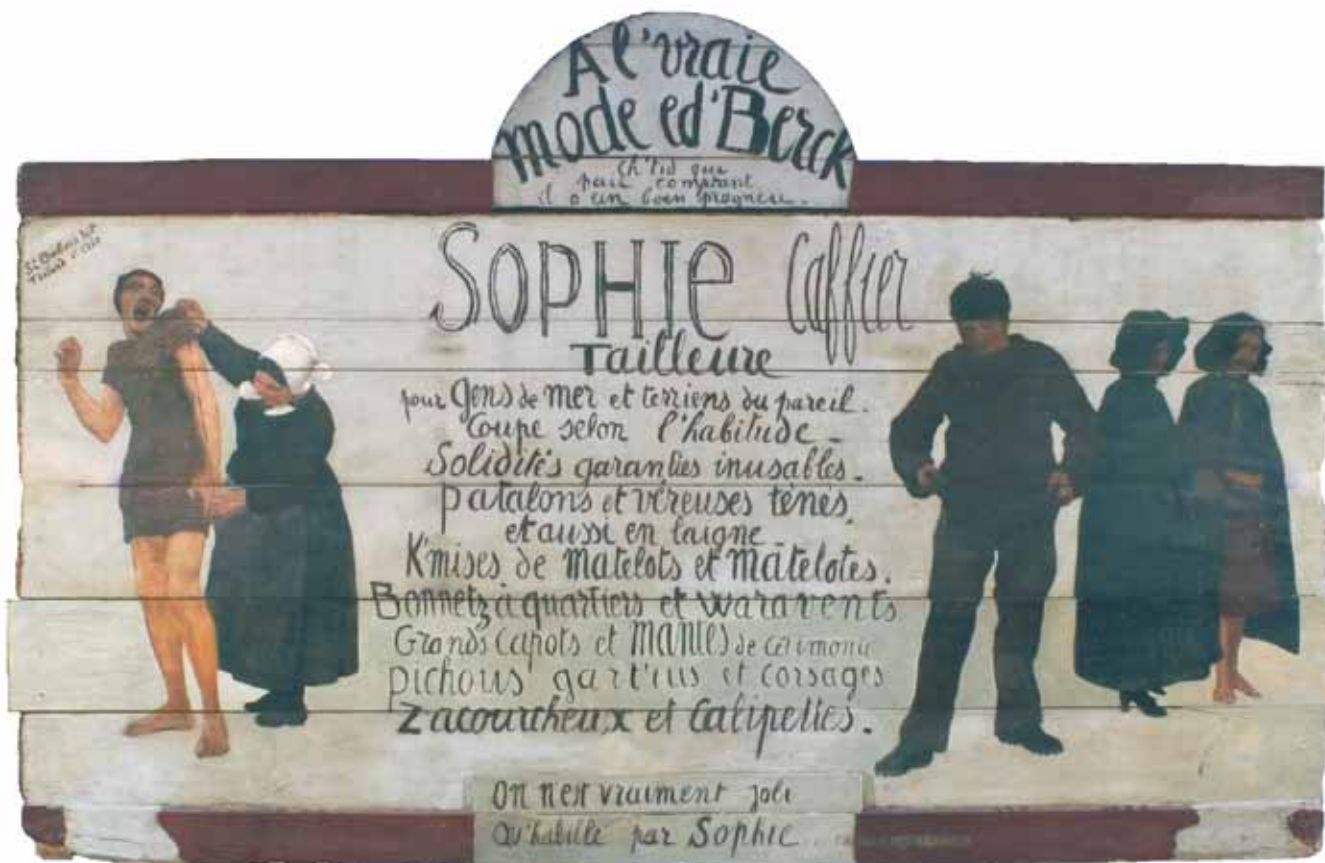 A l'vraie
mode ed'Berck
Ch'tid que
paie comptant
il o un boen
SOPHIE Caffier
Tailleure
pour Gens de mer et terriens du pareil.
Coupe selon l'habitude.
Solidités garanties inusables.
patalons et véreuses ténes,
et aussi en laigne
K'mises de Matelots et Matelotes.
Bonnetz à quartiers et waravents
Grands Capots et MANTES de cérimonie
pichous gart'ius et corsages
Zacourcheux et Calipettes.
On n'est vraiment joli
Qu'habillé par Sophie